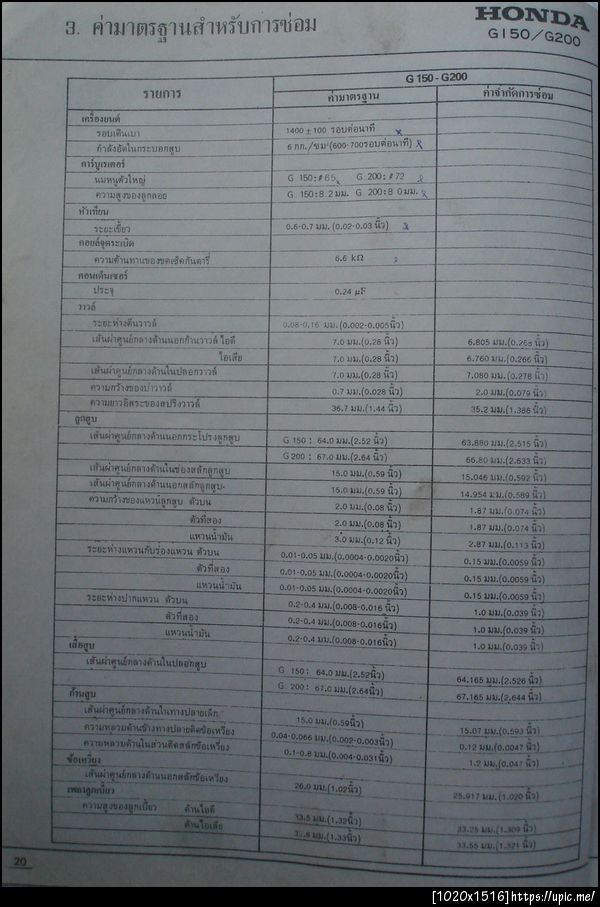 3. ค่ามาตรฐานสำหรับการซ่อม
HONDA
G150/G200
รายการ
G 150 - G200
ค่ามาตรฐาน
ค่าจำกัดการซ่อม
เครื่องยนต์
รอบเดินเบา 1400 ± 100 รอบต่อนาที
กำลังอัดในกระบอกสูบ 6 กก./ซม² (600-700รอบต่อนาที)
คาร์บูเรเตอร์
นมหนูตัวใหญ่ G 150:#65 G 200:#72
ความสูงของลูกลอย G 150:8.2 มม. G 200:8.0 มม.
หัวเทียน
ระยะเขี้ยว 0.6-0.7 มม. (0.02-0.03 นิ้ว)
คอยล์จุดระเบิด
ความต้านทานของขดเซ็คกันดารี่ 6.6 kΩ
คอนเด็นเซอร์
ประจุ 0.24 µF
วาวล์
ระยะห่างตีนวาวล์ 0.08-0.16 มม. (0.002-0.005นิ้ว)
เส้นผ่าศูนย์กลางด้านนอกก้านวาวล์ ไอดี 7.0 มม.(0.28 นิ้ว) 6.805 มม.(0.268 นิ้ว)
ไอเสีย 7.0 มม.(0.28 นิ้ว) 6.760 มม.(0.266 นิ้ว)
เส้นผ่าศูนย์กลางด้านในปลอกวาวล์ 7.0 มม.(0.28 นิ้ว) 7.080 มม.(0.278 นิ้ว)
ความกว้างของบ่าวาวล์ 0.7 มม.(0.028 นิ้ว) 2.0 มม.(0.079 นิ้ว)
ความยาวอิสระของสปริงวาวล์ 36.7 มม.(1.44 นิ้ว) 35.2 มม.(1.386 นิ้ว)
ลูกสูบ
เส้นผ่าศูนย์กลางด้านนอกกระโปรงลูกสูบ G 150 : 64.0 มม.(2.52 นิ้ว) 63.880 มม.(2.515 นิ้ว)
G 200 : 67.0 มม.(2.64 นิ้ว) 66.80 มม.(2.633 นิ้ว)
เส้นผ่าศูนย์กลางด้านในช่องสลักลูกสูบ 15.0 มม.(0.59 นิ้ว) 15.046 มม.(0.592 นิ้ว)
เส้นผ่าศูนย์กลางด้านนอกสลักลูกสูบ 15.0 มม.(0.59 นิ้ว) 14.954 มม.(0.589 นิ้ว)
ความกว้างของแหวนลูกสูบ ตัวบน 2.0 มม.(0.08 นิ้ว) 1.87 มม.(0.074 นิ้ว)
ตัวที่สอง 2.0 มม.(0.08 นิ้ว) 1.87 มม.(0.074 นิ้ว)
แหวนน้ำมัน 3.0 มม.(0.12 นิ้ว) 2.87 มม.(0.113 นิ้ว)
ระยะห่างแหวนกับร่องแหวน ตัวบน 0.01-0.05 มม.(0.0004-0.0020นิ้ว) 0.15 มม.(0.0059 นิ้ว)
ตัวที่สอง 0.01-0.05 มม.(0.0004-0.0020นิ้ว) 0.15 มม.(0.0059 นิ้ว)
แหวนน้ำมัน 0.01-0.05 มม.(0.0004-0.0020นิ้ว) 0.15 มม.(0.0059 นิ้ว)
ระยะห่างปากแหวน ตัวบน 0.2-0.4 มม.(0.008-0.016 นิ้ว) 1.0 มม.(0.039 นิ้ว)
ตัวที่สอง 0.2-0.4 มม.(0.008-0.016นิ้ว) 1.0 มม.(0.039 นิ้ว)
แหวนน้ำมัน 0.2-0.4 มม.(0.008-0.016นิ้ว) 1.0 มม.(0.039 นิ้ว)
เสื้อสูบ
เส้นผ่าศูนย์กลางด้านในปลอกสูบ G 150 : 64.0 มม.(2.52นิ้ว) 64.165 มม.(2.526 นิ้ว)
G 200 : 67.0 มม.(2.64นิ้ว) 67.165 มม.(2.644 นิ้ว)
ก้านสูบ
เส้นผ่าศูนย์กลางด้านในทางปลายเล็ก 15.0 มม.(0.59นิ้ว) 15.07 มม.(0.593 นิ้ว)
ความหลวมด้านข้างทางปลายติดข้อเหวี่ยง 0.04-0.066 มม.(0.002-0.003นิ้ว) 0.12 มม.(0.0047 นิ้ว)
ความหลวมด้านในส่วนติดสลักข้อเหวี่ยง 0.1-0.8 มม.(0.004-0.031นิ้ว) 1.2 มม.(0.047 นิ้ว)
ข้อเหวี่ยง
เส้นผ่าศูนย์กลางด้านนอกสลักข้อเหวี่ยง 26.0 มม.(1.02นิ้ว) 25.917 มม.(1.020 นิ้ว)
เพลาลูกเบี้ยว
ความสูงของลูกเบี้ยว ด้านไอดี 33.5 มม.(1.32นิ้ว) 33.25 มม.(1.309 นิ้ว)
ด้านไอเสีย มม.(1.33นิ้ว) 33.55 มม.(1.321 นิ้ว)
20
[1020x1516]https://upic.me/